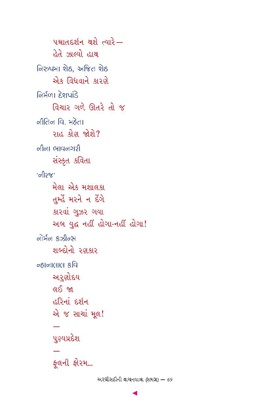 પશ્ચાતદર્શન થશે ત્યારે —
હેતે ઝાલ્યો હાથ
નિરુપમા શેઠ, અજિત શેઠ
એક વિધવાને કારણે
નિર્મળા દેશપાંડે
વિચાર ગળે ઊતરે તો જ
નીતિન વિ. મહેતા
રાહ કોણ જોશે?
નીના ભાવનગરી
સંસ્કૃત કવિતા
'નીરજ'
મેલા એક મશાલકા
તુમ્હેં મરને ન દેંગે
કારવાં ગુઝર ગયા
અબ યુદ્ધ નહીં હોગા-નહીં હોગા!
નોર્મન કઝીન્સ
શબ્દોનો રણકાર
ન્હાનાલાલ કવિ
અરુણોદય
લઈ જા
હરિનાં દર્શન
એ જ સાચાં મૂલ!
—
પુણ્યપ્રદેશ
—
ફૂલની ફોરમ...
અરધીસદીની વાચનયાત્રા (સમગ્ર) — 69